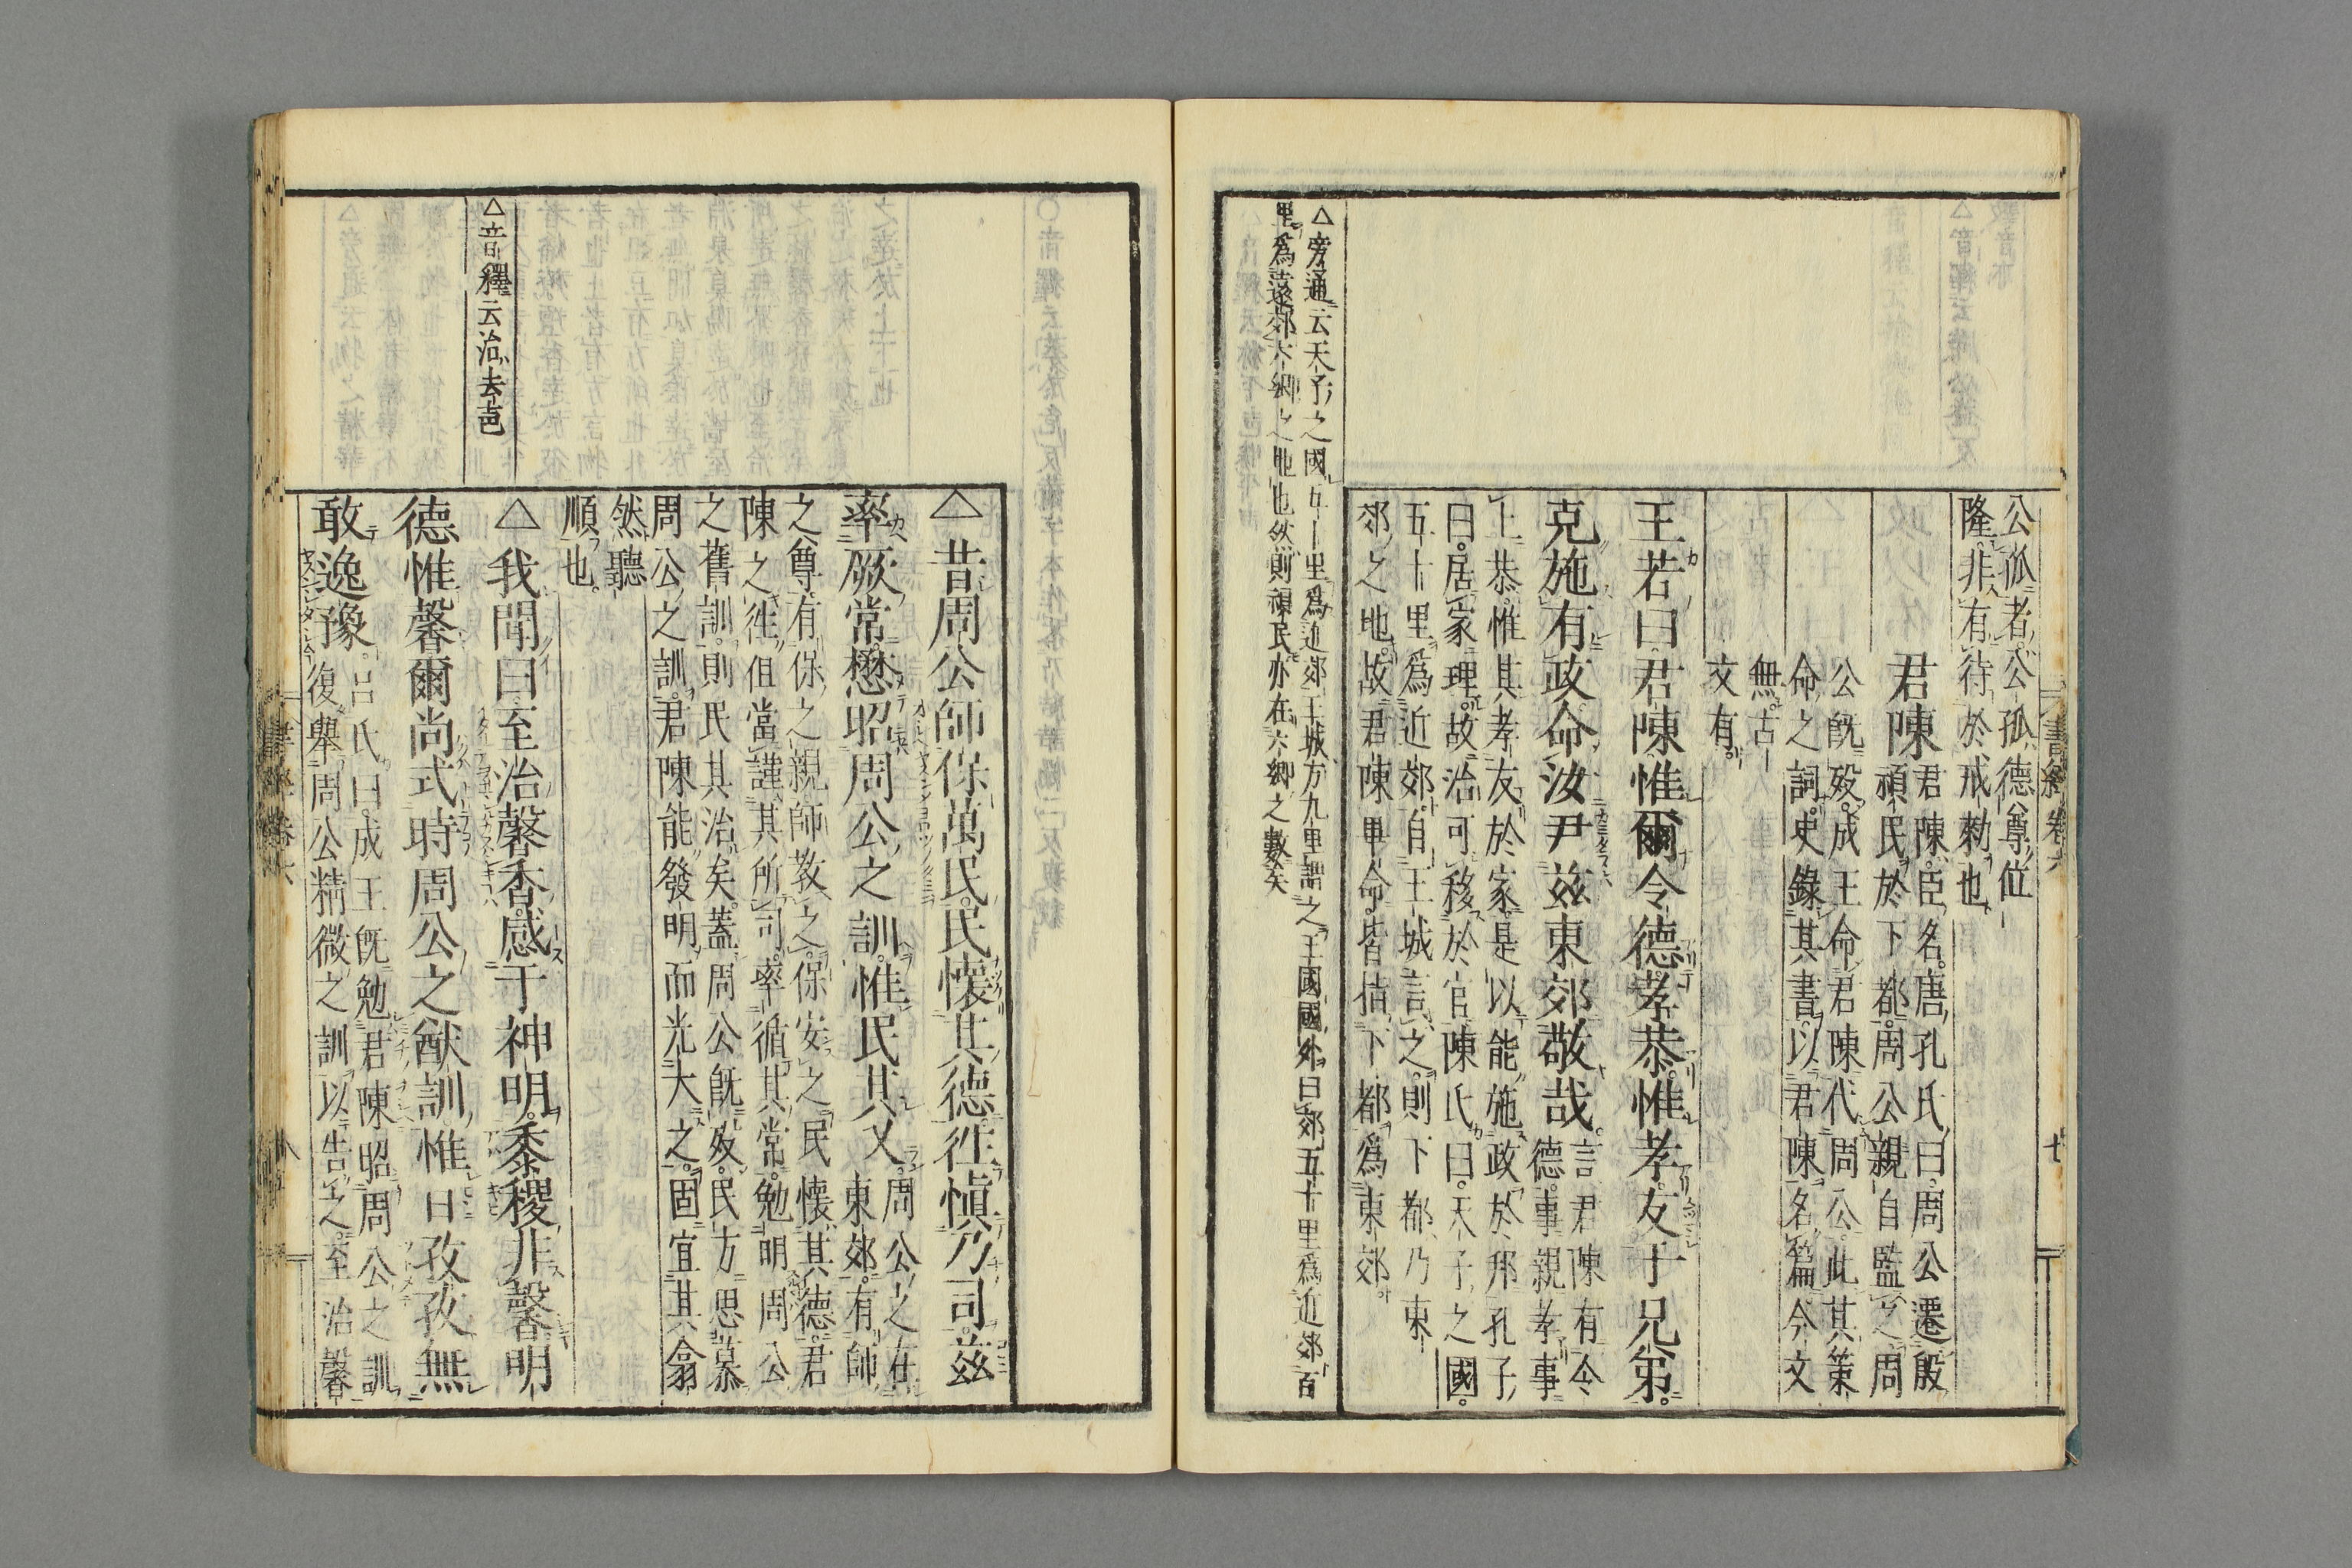 公孤者公孤德尊位
隆非有待於戒勑也
君陳君陳臣名唐孔氏曰周公遷殷
頑民於下都周公親自監之周
公旣歿成王命君陳代周公此其策
命之詞史錄其書以君陳名篇今文
無古
文有
王若曰君陳惟爾令德孝恭惟孝友于兄弟
克施有政命汝尹玆東郊敬哉言君陳有令
德事親孝事
上恭惟其孝友於家是以能施政於邦孔子
曰居家理故治可移於官陳氏曰天子之國
五十里爲近郊自王城言之則下都乃東
郊之地故君陳畢命皆指下都爲東郊
△旁通云天子之國五十里爲近郊王城方九里謂之王國國外曰郊五十里爲近郊百
里爲遠郊六鄉之地也然則頑民亦在六鄉之數矣
書經卷六
七
△昔周公師保萬民民懷其德往愼乃司玆
率厥常懋昭周公之訓惟民其乂周公之在
東郊有師
之尊有保之親師教之保安之民懷其德君
陳之往但當謹其所司率循其常勉明周公
之舊訓則民其治矣蓋周公旣歿民方思慕
周公之訓君陳能發明而光大之固宜其翕
然聽
順也
△音釋云治去聲
△我聞曰至治馨香感于神明黍稷非馨明
德惟馨爾尚式時周公之猷訓惟日孜孜無
敢逸豫呂氏曰成王旣勉君陳昭周公之訓
復舉周公精微之訓以告之至治馨
書經卷六
八